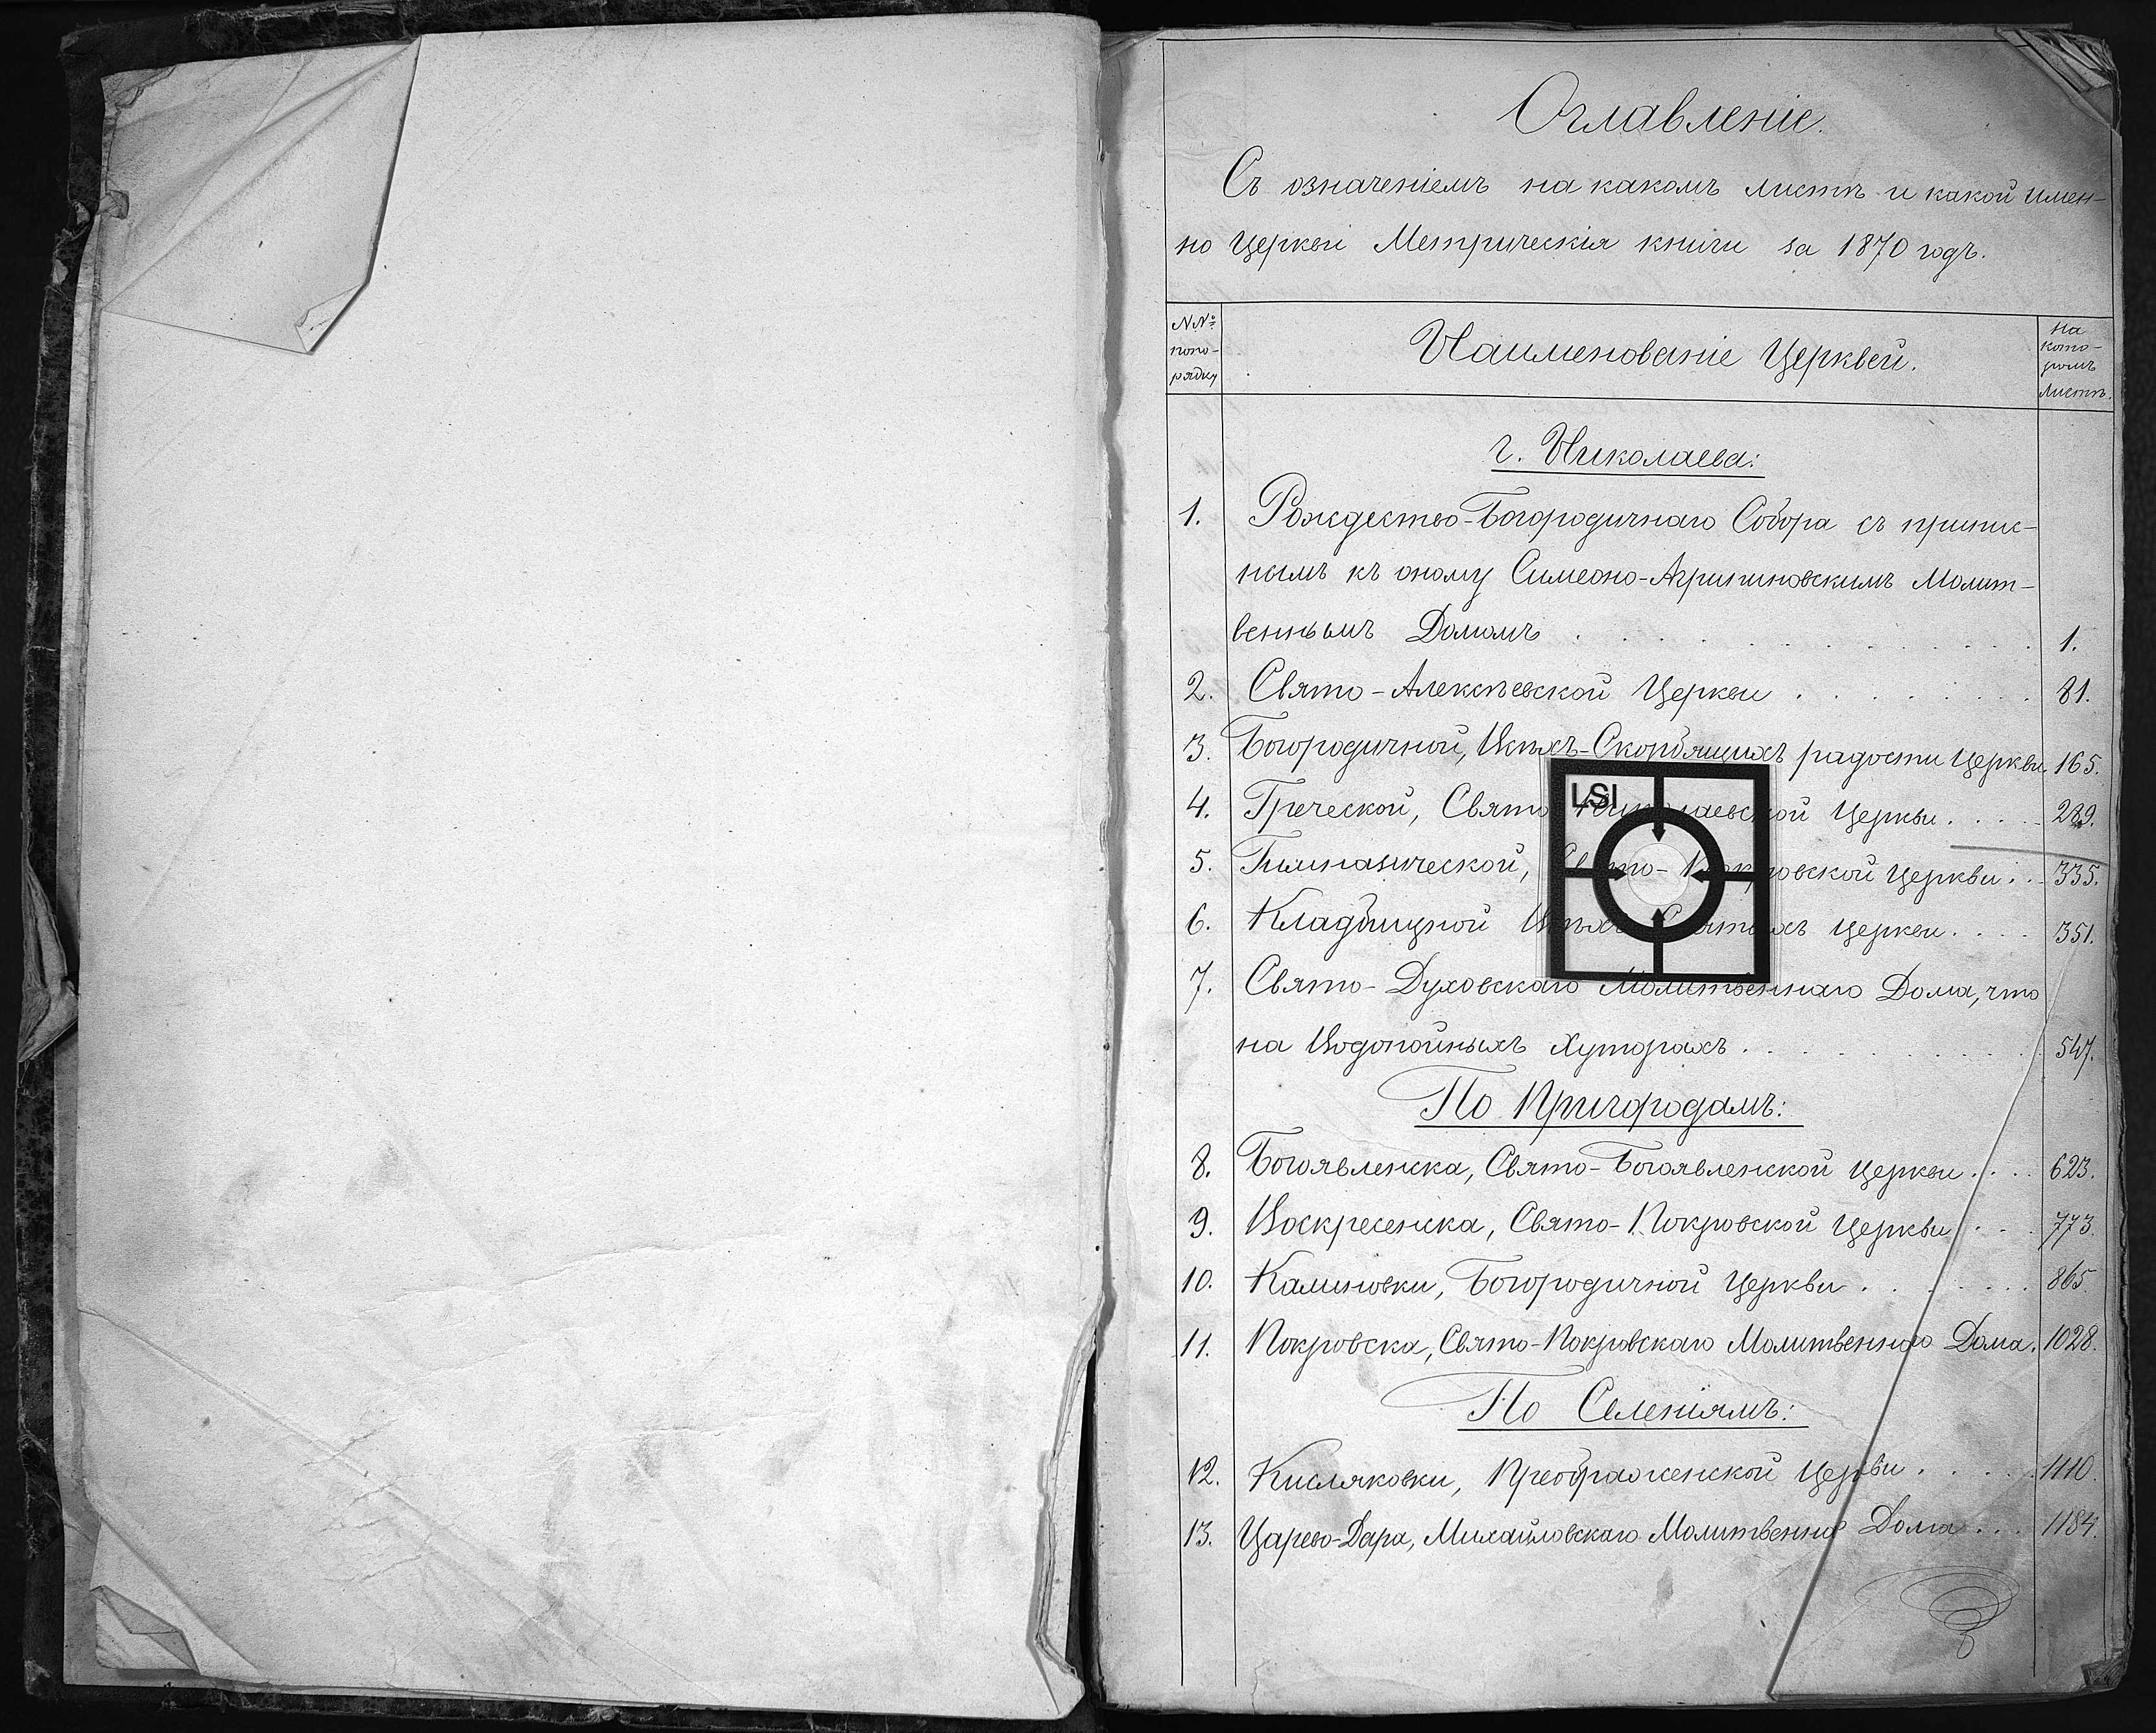 Оглавленіе.
Съ означеніемъ на какомъ листѣ и какой имен-
но Церкви Метрическія книги за 1870 годъ.
№№
попо-
рядку
Наименованіе Церквей.
На
кото-
ромъ
листѣ.
г. Николаева:
1. Рождество-Богородичнаго Собора съ припис-
нымъ къ оному Симеоно-Агрипиновскимъ Молит-
веннымъ Домомъ . . . . . . . . . . 1.
2. Свято-Алексѣевской Церкви . . . . . . . . 81.
3. Богородичной, Всѣхъ-Скорбящихъ радости Церкви 165.
4. Греческой, Свято Николаевской Церкви . . . . 289.
LSI
5. Гимназической, Свято-Покровской Церкви . . 335.
6. Кладбищной Всѣхъ Святыхъ Церкви . . . . 351.
7. Свято-Духовскаго Молитвеннаго Дома, что
на Водопойныхъ Хуторахъ . . . . . . . . . . 547.
По Пригородамъ:
8. Богоявленска, Свято-Богоявленской Церкви . . . . 623.
9. Воскресенска, Свято-Покровской Церкви . . . 773.
10. Калиновки, Богородичной Церкви . . . . . . . 865.
11. Покровска, Свято-Покровскаго Молитвеннаго Дома. 1028.
По Селеніямъ:
12. Кисляковки, Преображенской Церкви . . . . . 1110.
13. Царево-Дара, Михайловскаго Молитвенна Дома . . . 1184.